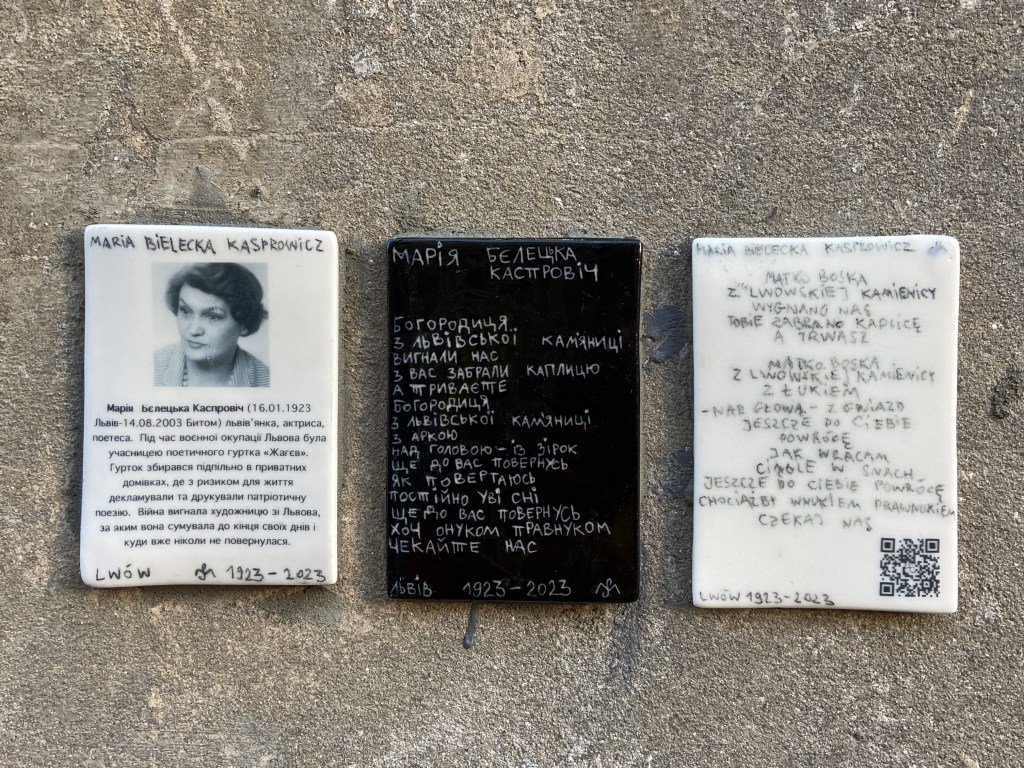 MARIA BIELECKA KASPROWICZ
Марія Бєлецька Каспровіч (16.01.1923
Львів-14.08.2003 Битом) львів'янка, актриса,
поетеса. Під час воєнної окупації Львова була
учасницею поетичного гуртка «Жагєв».
Гурток збирався підпільно в приватних
домівках, де з ризиком для життя
декламували та друкували патріотичну
поезію. Війна вигнала художницю зі Львова,
за яким вона сумувала до кінця своїх днів і
куди вже ніколи не повернулася.
LWÓW 1923-2023
МАРІЯ БЄЛЕЦЬКА
КАСПРОВІЧ
БОГОРОДИЦЯ
З ЛЬВІВСЬКОЇ КАМ'ЯНИЦІ
ВИГНАЛИ НАС
З ВАС ЗАБРАЛИ КАПЛИЦЮ
А ТРИВАЄТЕ
БОГОРОДИЦЯ
З ЛЬВІВСЬКОЇ КАМ'ЯНИЦІ
З АРКОЮ
НАД ГОЛОВОЮ-ІЗ ЗІРОК
ЩЕ ДО ВАС ПОВЕРНУСЬ
ЯК ПОВЕРТАЮСЬ
ПОСТІЙНО УВІ СНІ
ЩЕ ДО ВАС ПОВЕРНУСЬ
ХОЧ ОНУКОМ ПРАВНУКОМ
ЧЕКАЙТЕ НАС
ЛЬВІВ 1923-2023
MARIA BIELECKA KASPROWICZ
MATKO BOSKA
Z LWOWSKIEJ KAMIENICY
WYGNANO NAS
TOBIE ZABRANO KAPLICĘ
A TRWASZ
MATKO BOSKA
Z LWOWSKIEJ KAMIENICY
Z ŁUKIEM
-NAD GŁOWĄ- Z GWIAZD
JESZCZE DO CIEBIE
POWRÓCĘ
JAK WRACAM
CIĄGLE W SNACH
JESZCZE DO CIEBIE POWRÓCĘ
CHOCIAŻBY WNUKIEM PRAWNUKIEM
CZEKAJ NAS
LWÓW 1923-2023